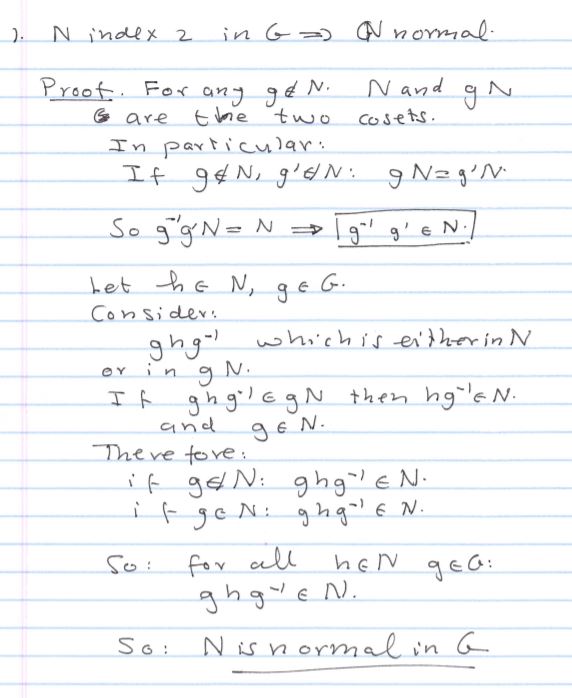 1. N index 2 in G ⇒ N normal.
Proof. For any g∉N. N and gN
are the two cosets.
In particular:
If g∉N, g'∉N: gN=g'N.
So g⁻¹g'N = N ⇒ g⁻¹ g' ∈ N.
Let h ∈ N, g ∈ G.
Consider:
ghg⁻¹ which is either in N
or in gN.
If ghg⁻¹ ∈ gN then hg⁻¹∈N.
and g ∈ N.
Therefore:
if g∉N: ghg⁻¹ ∈ N.
if g∈N: ghg⁻¹ ∈ N.
So: for all h∈N g∈G:
ghg⁻¹ ∈ N.
So: N is normal in G